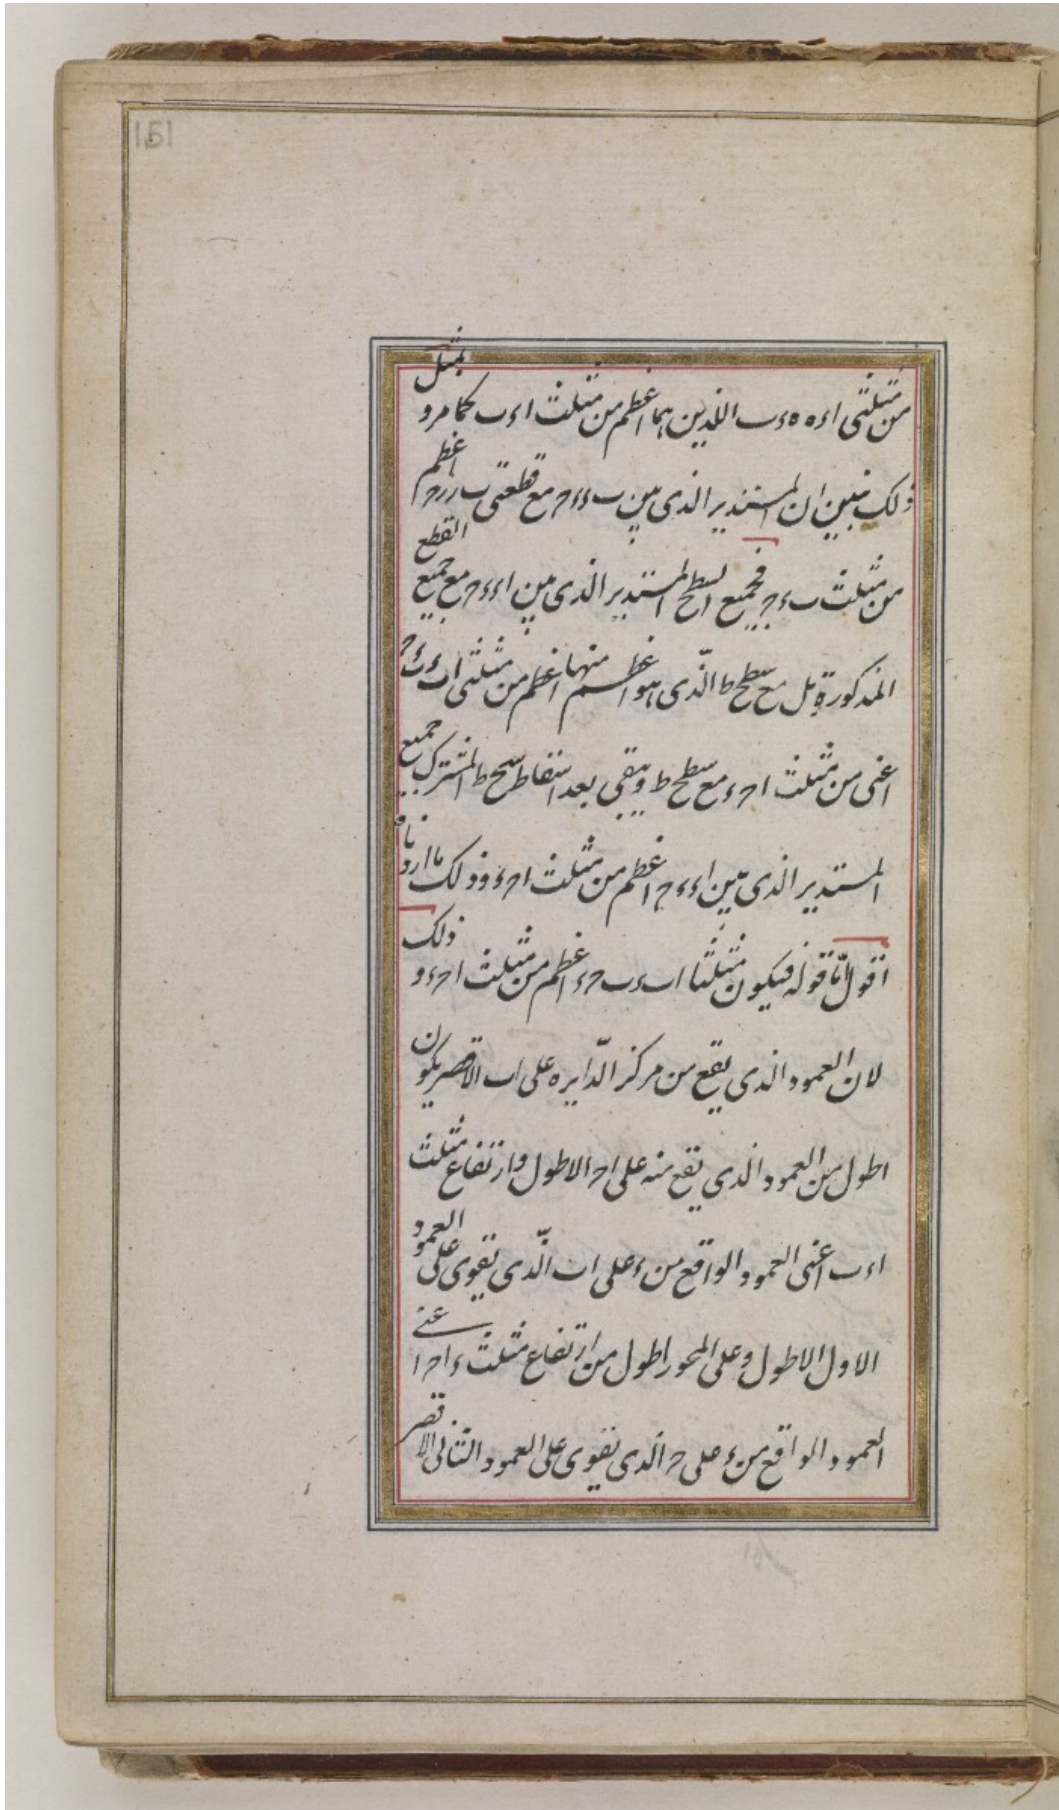 151
من مثلثى اءه هءب اللذين هما اعظم من مثلث اءب كما مر و بمثل
ذلك نبين ان المستدير الذى بين ب ء ء ج مع قطعتى ب ز ز ج اعظم
من مثلث ب ء ج فجميع السطح المستدير الذى بين اء ء ج مع جميع القطع
المذكورة بل مع سطح ط الّذى هو اعظم منها اعظم من مثلثى اب ء ب ء ج
اعنى من مثلث ا ج ء مع سطح ط ويبقى بعد اسقاط سطح ط المشترك جميع
المستدير الذى بين اء ء ج اعظم من مثلث ا ج ء وذلك ما اردناه
اقول امّا قوله فيكون مثلثا اب ء ب ج ء اعظم من مثلث ا ج ء و ذلك
لان العمود الذى يقع من مركز الدّايره على اب الاقصر يكون
اطول من العمود الذى يقع منه على ا ج الاطول وارتفاع مثلث
اءب اعنى العمود الواقع من ء على اب الّذى يقوى على العمود
الاول الاطول وعلى المحور اطول من ارتفاع مثلث ء ا ج اعنى
العمود الواقع من ء على ج الذى يقوى على العمود الثانى الاقصر